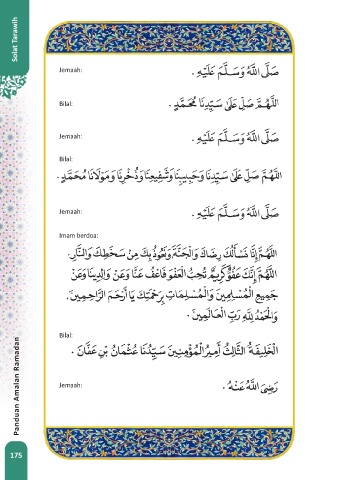 Solat Tarawih
Jemaah:
صَلَّى اللَّهُ وَسَلَّمَ عَلَيْهِ .
Bilal:
اَللَّهُمَّ صَلِّ عَلَىٰ سَيِّدِنَا مُحَمَّدٍ .
Jemaah:
صَلَّى اللَّهُ وَسَلَّمَ عَلَيْهِ .
Bilal:
اَللَّهُمَّ صَلِّ عَلَىٰ سَيِّدِنَا وَحَبِيبِنَا وَشَفِيعِنَا وَذُخْرِنَا وَمَوْلَانَا مُحَمَّدٍ .
Jemaah:
صَلَّى اللَّهُ وَسَلَّمَ عَلَيْهِ .
Imam berdoa:
اَللَّهُمَّ إِنَّا نَسْأَلُكَ رِضَاكَ وَالْجَنَّةَ وَنَعُوذُ بِكَ مِنْ سَخَطِكَ وَالنَّارِ.
اَللَّهُمَّ إِنَّكَ عَفُوٌّ كَرِيمٌ تُحِبُّ الْعَفْوَ فَاعْفُ عَنَّا وَعَنْ وَالِدِينَا وَعَنْ
جَمِيعِ الْمُسْلِمِينَ وَالْمُسْلِمَاتِ بِرَحْمَتِكَ يَا أَرْحَمَ الرَّاحِمِينَ.
وَالْحَمْدُ لِلَّهِ رَبِّ الْعَالَمِينَ .
Bilal:
الْخَلِيفَةُ الثَّالِثُ أَمِيرُ الْمُؤْمِنِينَ سَيِّدُنَا عُثْمَانُ بْنُ عَفَّانَ .
Jemaah:
رَضِيَ اللَّهُ عَنْهُ .
Panduan Amalan Ramadan
175